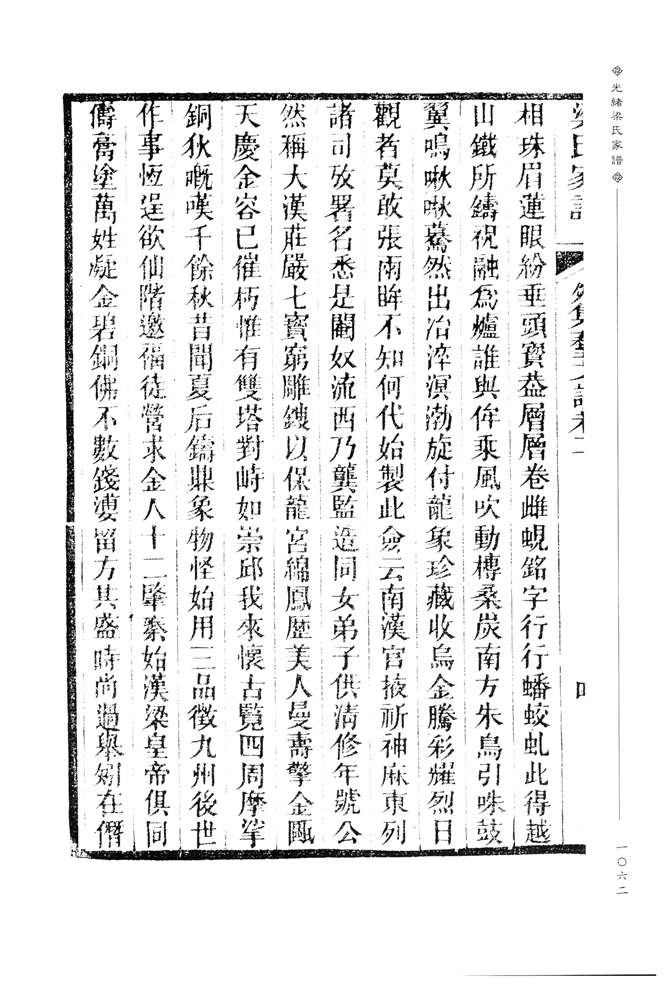 光緒梁氏家譜
一〇六二
梁氏家譜
相珠眉蓮眼紛垂頭寶葢層層卷雌蜺銘字行行蟠蛟虬此得越
山鐵所鑄祝融爲爐誰與侔乘風吹動槫桑炭南方朱鳥引咮鼓
翼鳴啾啾驀然出冶淬溟渤旋付龍象珍藏收烏金騰彩耀烈日
觀者莫敢張兩眸不知何代始製此僉云南漢宮掖祈神庥東列
諸司攷署名悉是閹奴流西乃龔監造同女弟子供清修年號公
然稱大漢莊嚴七寶窮雕鎪以保龍宮綿鳳歷美人曼壽擎金甌
天慶金容已催朽惟有雙塔對峙如崇邱我來懷古覽四周摩挲
銅狄嘅嘆千餘秋昔聞夏后鑄鼎象物怪始用三品徵九州後世
作事恆逞欲仙階邀福徒營求金人十二肇秦始漢梁皇帝俱同
儔膏塗萬姓凝金碧銅佛不數錢漊留方其盛時尚過舉矧在僭